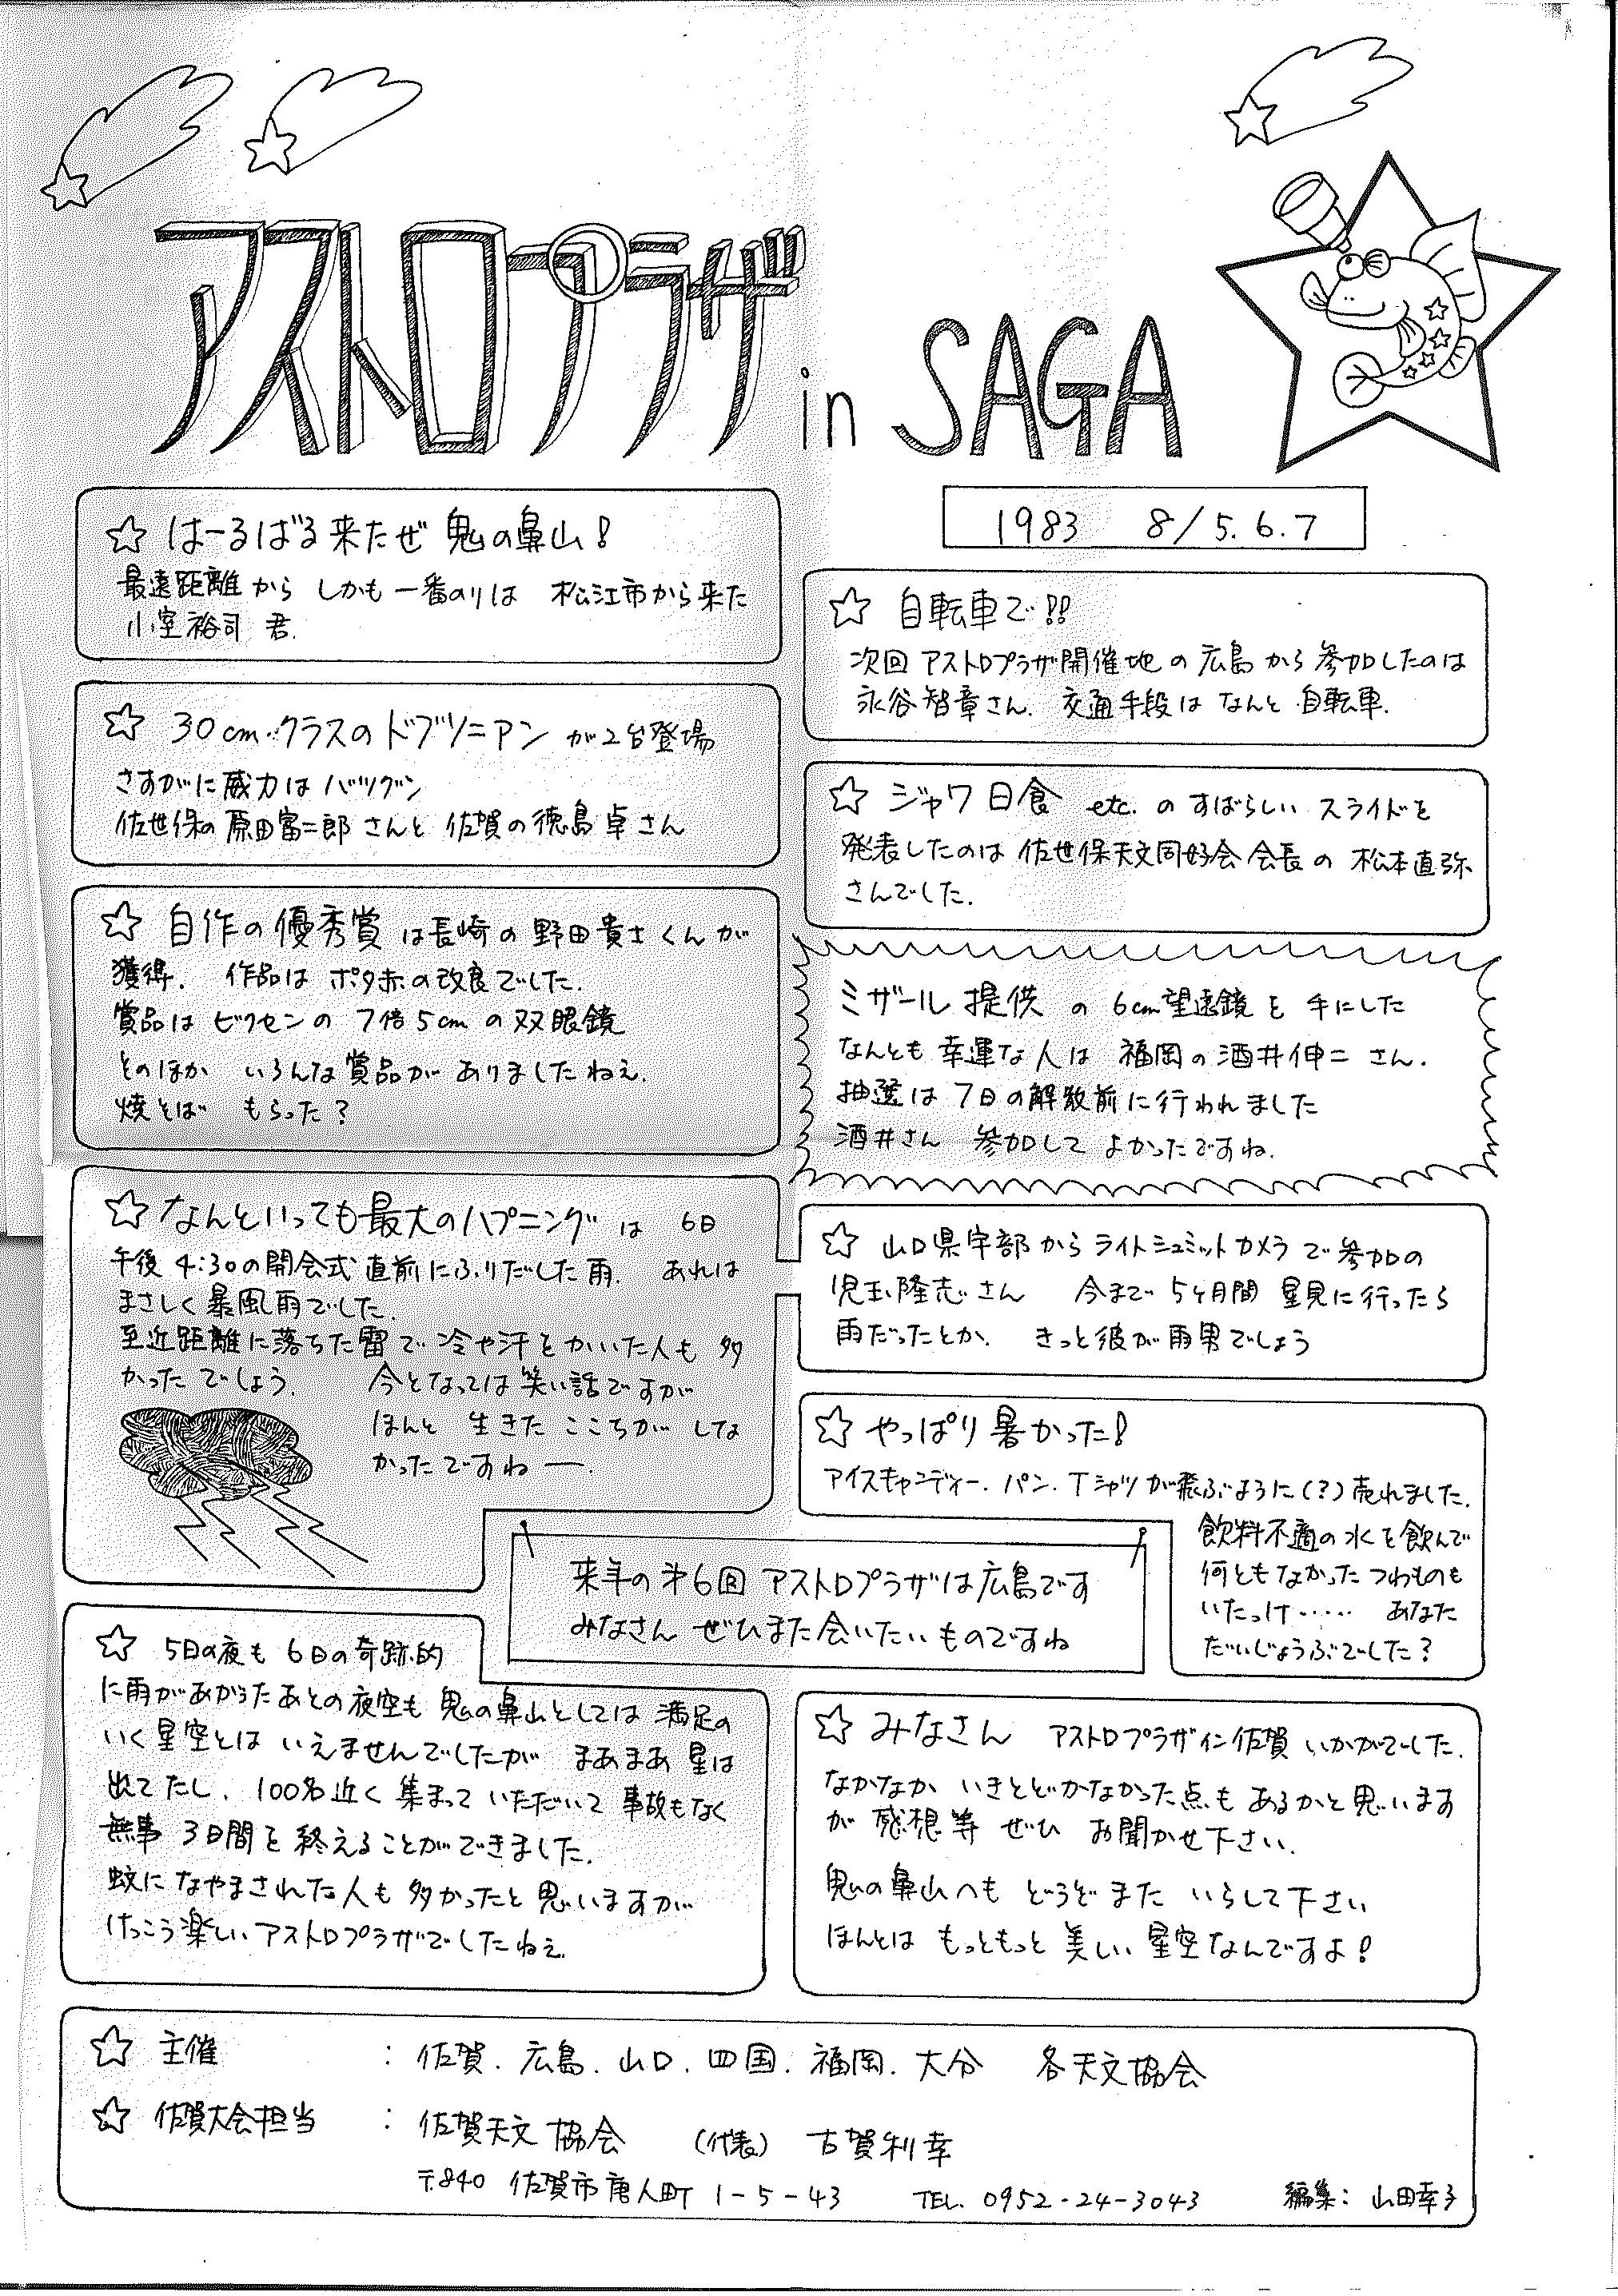 アストロプラザ in SAGA
1983 8/5.6.7
☆ はーるばる来たぜ 鬼の鼻山!
最遠距離から しかも一番のりは 松江市から来た
小室裕司 君.
☆ 30cm.クラスのドブソニアン が2台登場
さすがに威力はバツグン
佐世保の原田富二郎さんと 佐賀の徳島卓さん
☆ 自作の優秀賞は長崎の野田貴士くんが
獲得. 作品は ポタ赤の改良でした.
賞品は ビクセンの 7倍5cmの双眼鏡
そのほか いろんな賞品がありましたねえ.
焼そば もらった?
☆ なんといっても最大のハプニングは 6日
午後4:30の開会式直前にふりだした雨. あれは
まさしく暴風雨でした.
至近距離に落ちた雷で冷や汗をかいた人も多
かったでしょう. 今となっては笑い話ですが
ほんと 生きた ここちが しな
かったですねー.
☆ 5日の夜も 6日の奇跡的
に雨があがったあとの夜空も 鬼の鼻山としては 満足の
いく星空とは いえませんでしたが まあまあ 星は
出てたし、100名近く集まって いただいて 事故もなく
無事 3日間を終えることができました.
蚊に なやまされた人も 多かったと思いますが
けっこう楽しいアストロプラザでしたねえ.
☆ 自転車で!!
次回 アストロプラザ開催地の広島から参加したのは
永谷智章さん. 交通手段は なんと 自転車.
☆ ジャワ日食 etc. の すばらしい スライドを
発表したのは 佐世保天文同好会会長の 松本直弥
さんでした.
ミザール提供 の 6cm望遠鏡を 手にした
なんとも 幸運な人は 福岡の酒井伸二さん.
抽選は7日の解散前に行われました
酒井さん 参加して よかったですね.
☆ 山口県宇部から ライトシュミットカメラで参加の
児玉隆志さん 今まで 5ヶ月間 星見に行ったら
雨だったとか. きっと彼が雨男でしょう
☆ やっぱり暑かった!
アイスキャンディー. パン. Tシャツが飛ぶように(?)売れました.
飲料不適の水を飲んで
何ともなかった つわものも
いたっけ…… あなた
だいじょうぶでした?
来年の才6回 アストロプラザは広島です
みなさん ぜひまた会いたいものですね
☆ みなさん アストロプラザイン佐賀 いかがでした.
なかなか いきとどかなかった点もあるかと思います
が 感想等 ぜひ お聞かせ下さい.
鬼の鼻山へも どうぞ また いらして下さい
ほんとは もっともっと 美しい 星空なんですよ!
☆ 主催 : 佐賀. 広島. 山口. 四国. 福岡. 大分 各天文協会
☆ 佐賀大会担当 : 佐賀天文協会 (代表) 古賀利幸
〒840 佐賀市唐人町 1-5-43 TEL. 0952-24-3043 編集: 山田幸子